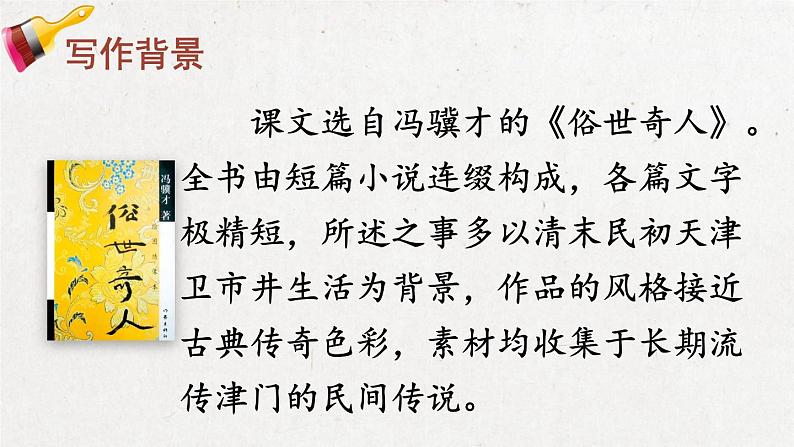 写作背景
课文选自冯骥才的《俗世奇人》。
全书由短篇小说连缀构成，各篇文字
极精短，所述之事多以清末民初天津
卫市井生活为背景，作品的风格接近
古典传奇色彩，素材均收集于长期流
传津门的民间传说。
冯骥才 著
俗世奇人
作家出版社